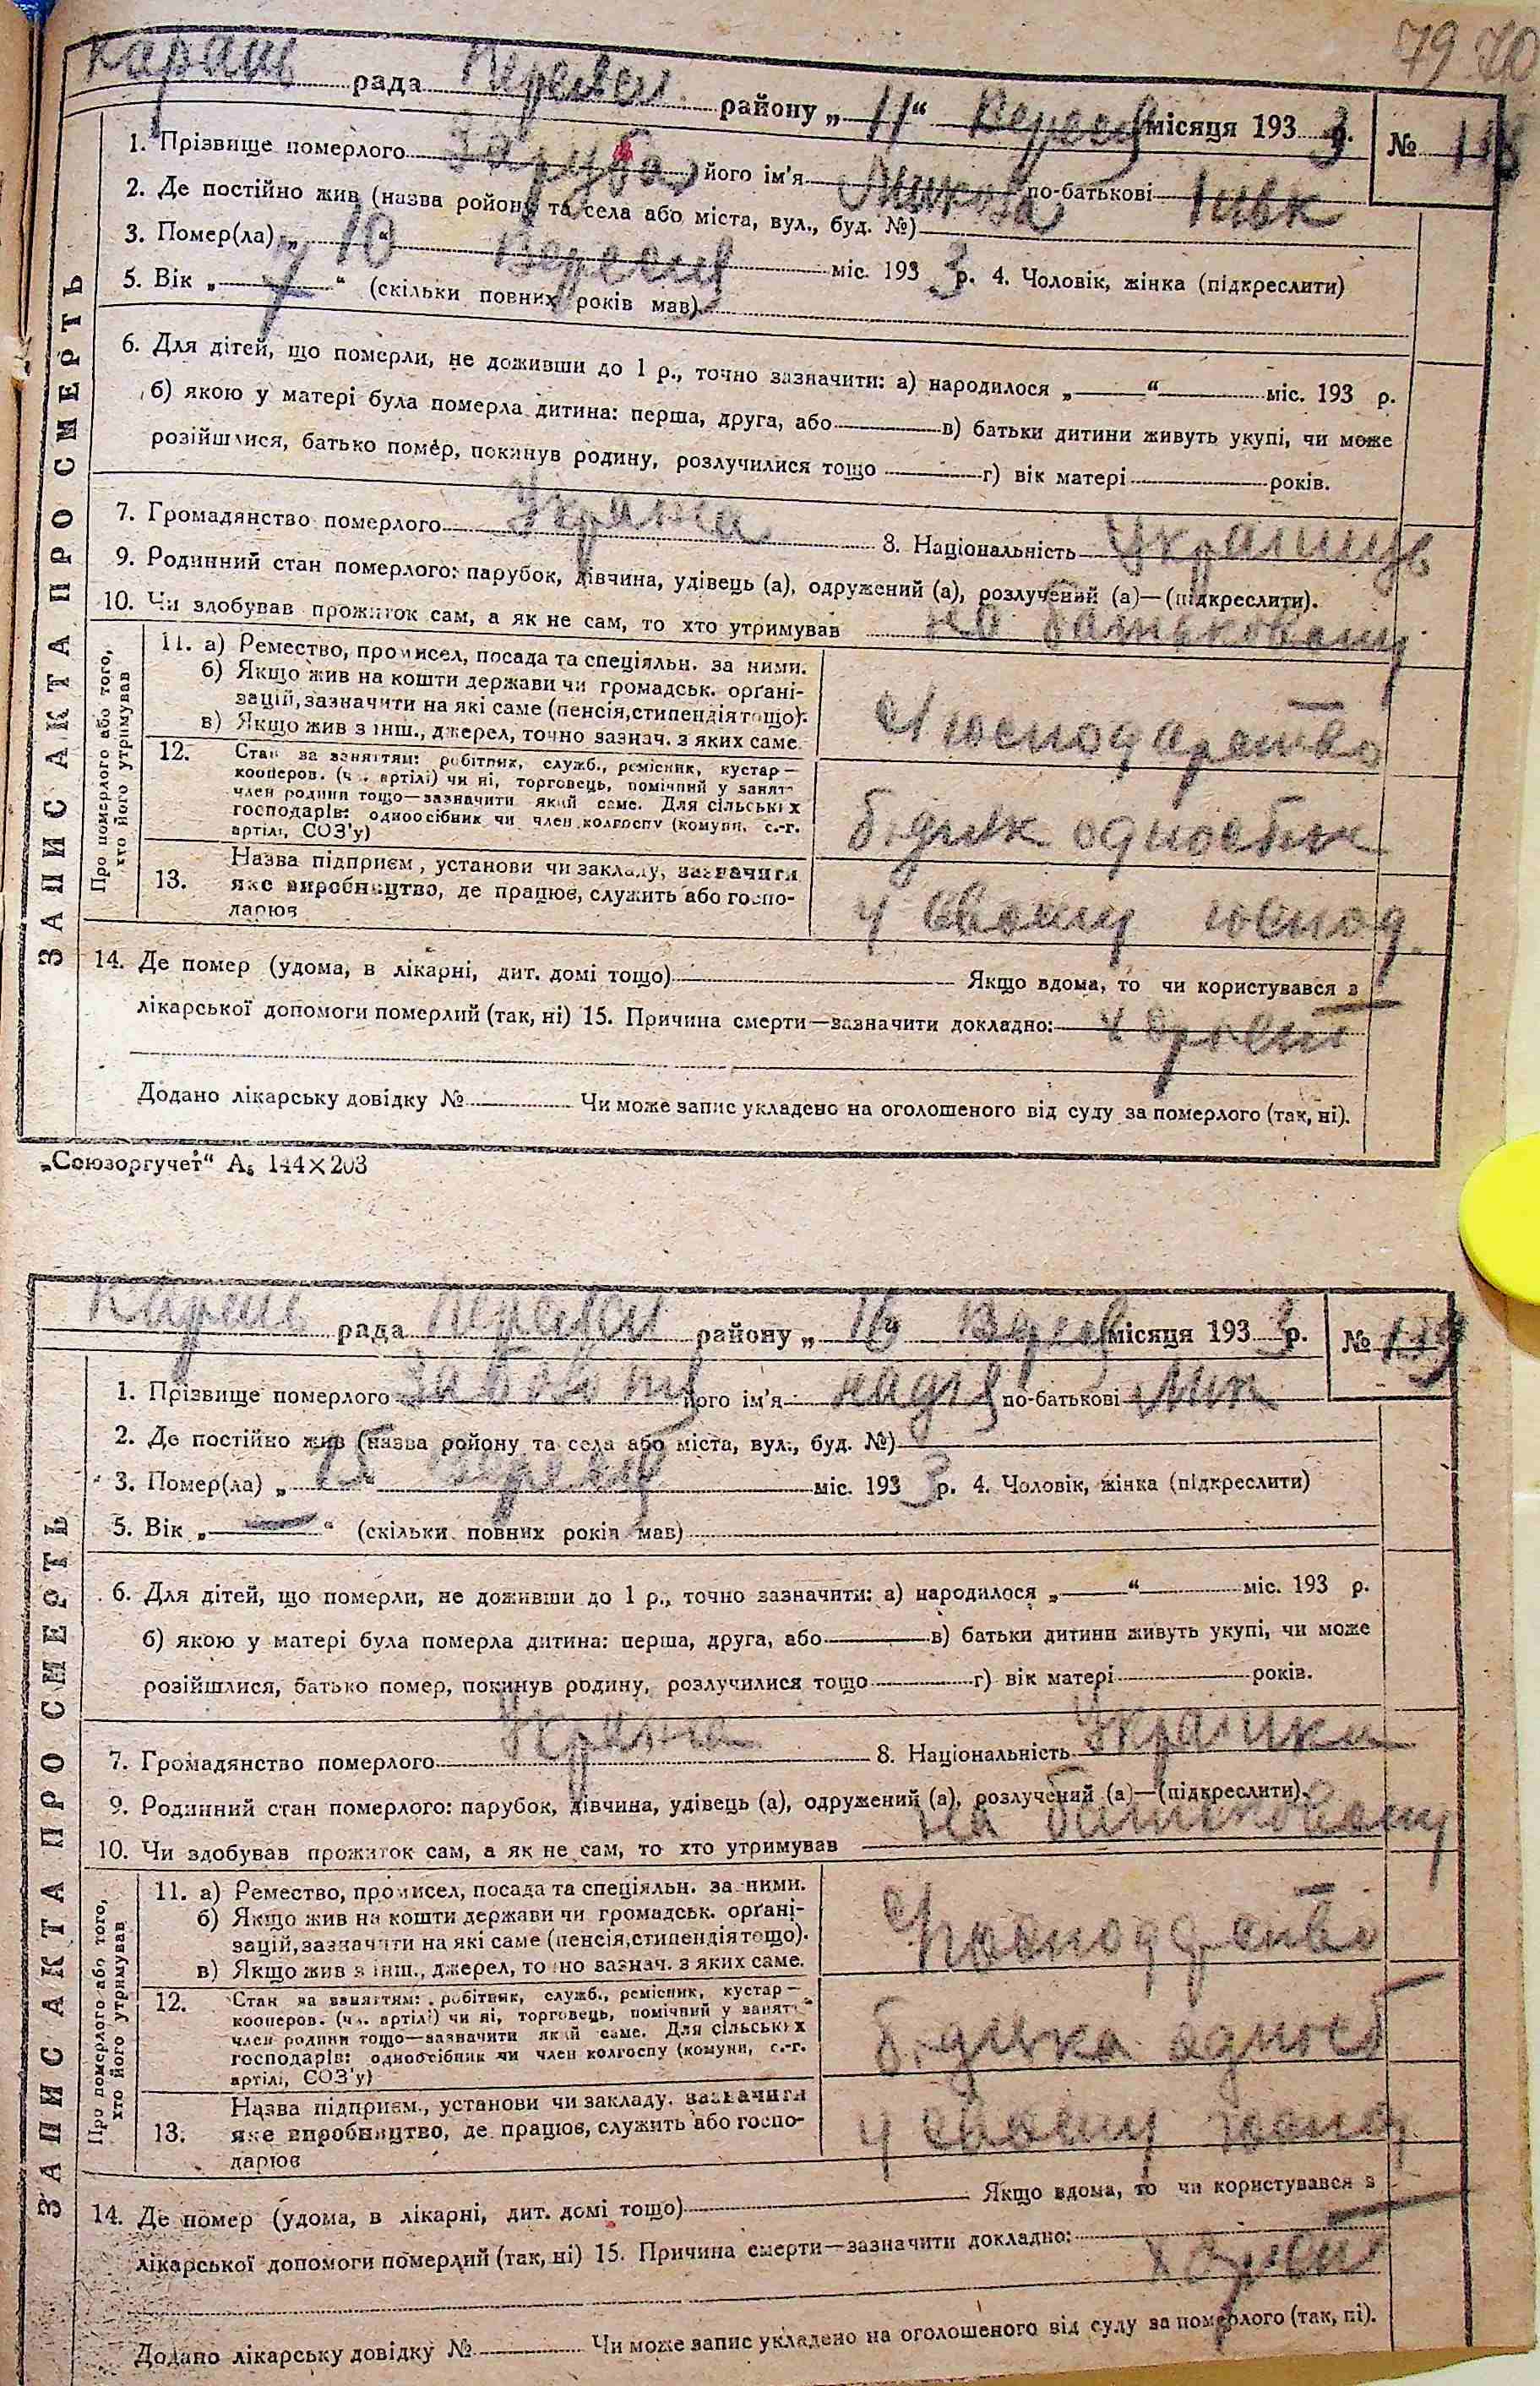 79 70
Карань рада Переясл. району „ 11 “ Вересня місяця 193 3 р. № 138
1. Прізвище померлого Заруба його ім'я Микола по-батькові Івак
2. Де постійно жив (назва ройону та села або міста, вул., буд. №)
3. Помер(ла) „ 10 “ Вересня міс. 193 3 р. 4. Чоловік, жінка (підкреслити)
5. Вік „ 7 “ (скільки повних років мав)
6. Для дітей, що померли, не доживши до 1 р., точно зазначити: а) народилося „ “ міс. 193 р.
б) якою у матері була померла дитина: перша, друга, або в) батьки дитини живуть укупі, чи може
розійшлися, батько помер, покинув родину, розлучилися тощо г) вік матері років.
7. Громадянство померлого Украина 8. Національність Українць
9. Родинний стан померлого: парубок, дівчина, удівець (а), одружений (а), розлучений (а)—(підкреслити).
10. Чи здобував прожиток сам, а як не сам, то хто утримував на батьковому
Про померлого або того, хто його утримував
11. а) Ремество, промисел, посада та спеціяльн. за ними.
б) Якщо жив на кошти держави чи громадськ. орґані-
зацій, зазначити на які саме (пенсія, стипендія тощо).
в) Якщо жив з інш., джерел, точно зазнач. з яких саме.
господарство
12. Стан за заняттям: робітник, служб., ремісник, кустар—
кооперов. (ч. артілі) чи ні, торговець, помічний у занят.
член родини тощо—зазначити який саме. Для сільських
господарів: одноосібник чи член колгоспу (комуни, с.-г.
артілі, СОЗ'у)
бідняк одноосібник
13. Назва підприєм., установи чи закладу, зазначити
яке виробництво, де працює, служить або госпо-
дарює
у своєму господ.
14. Де помер (удома, в лікарні, дит. домі тощо) Якщо вдома, то чи користувався з
лікарської допомоги померлий (так, ні) 15. Причина смерти—зазначити докладно:
Додано лікарську довідку № Чи може запис укладено на оголошеного від суду за померлого (так, ні).
ЗАПИС АКТА ПРО СМЕРТЬ
„Союзоргучет“ А₅ 144×203
Карань рада Переясл району „ 16 “ Верес місяця 193 3 р. № 139
1. Прізвище померлого його ім'я Надія по-батькові Мик
2. Де постійно жив (назва ройону та села або міста, вул., буд. №)
3. Помер(ла) „ 15 “ Вересня міс. 193 3 р. 4. Чоловік, жінка (підкреслити)
5. Вік „ — “ (скільки повних років мав)
6. Для дітей, що померли, не доживши до 1 р., точно зазначити: а) народилося „ “ міс. 193 р.
б) якою у матері була померла дитина: перша, друга, або в) батьки дитини живуть укупі, чи може
розійшлися, батько помер, покинув родину, розлучилися тощо г) вік матері років.
7. Громадянство померлого Украина 8. Національність Українка
9. Родинний стан померлого: парубок, дівчина, удівець (а), одружений (а), розлучений (а)—(підкреслити).
10. Чи здобував прожиток сам, а як не сам, то хто утримував на батьковому
Про померлого або того, хто його утримував
11. а) Ремество, промисел, посада та спеціяльн. за ними.
б) Якщо жив на кошти держави чи громадськ. орґані-
зацій, зазначити на які саме (пенсія, стипендія тощо).
в) Якщо жив з інш., джерел, точно зазнач. з яких саме.
господарство
12. Стан за заняттям: робітник, служб., ремісник, кустар—
кооперов. (ч. артілі) чи ні, торговець, помічний у занят.
член родини тощо—зазначити який саме. Для сільських
господарів: одноосібник чи член колгоспу (комуни, с.-г.
артілі, СОЗ'у)
біднячка одноосіб
13. Назва підприєм., установи чи закладу, зазначити
яке виробництво, де працює, служить або госпо-
дарює
у своєму господ
14. Де помер (удома, в лікарні, дит. домі тощо) Якщо вдома, то чи користувався з
лікарської допомоги померлий (так, ні) 15. Причина смерти—зазначити докладно:
Додано лікарську довідку № Чи може запис укладено на оголошеного від суду за померлого (так, ні).
ЗАПИС АКТА ПРО СМЕРТЬ